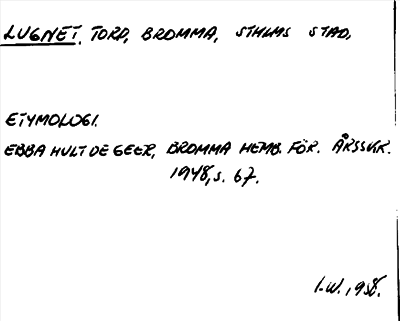 LUGNET, TORP, BROMMA, STHLMS STAD,
ETYMOLOGI.
EBBA HULT DE GEER, BROMMA HEMB. FÖR. ÅRSSKR.
1948, S. 67.
I.W. 1958.